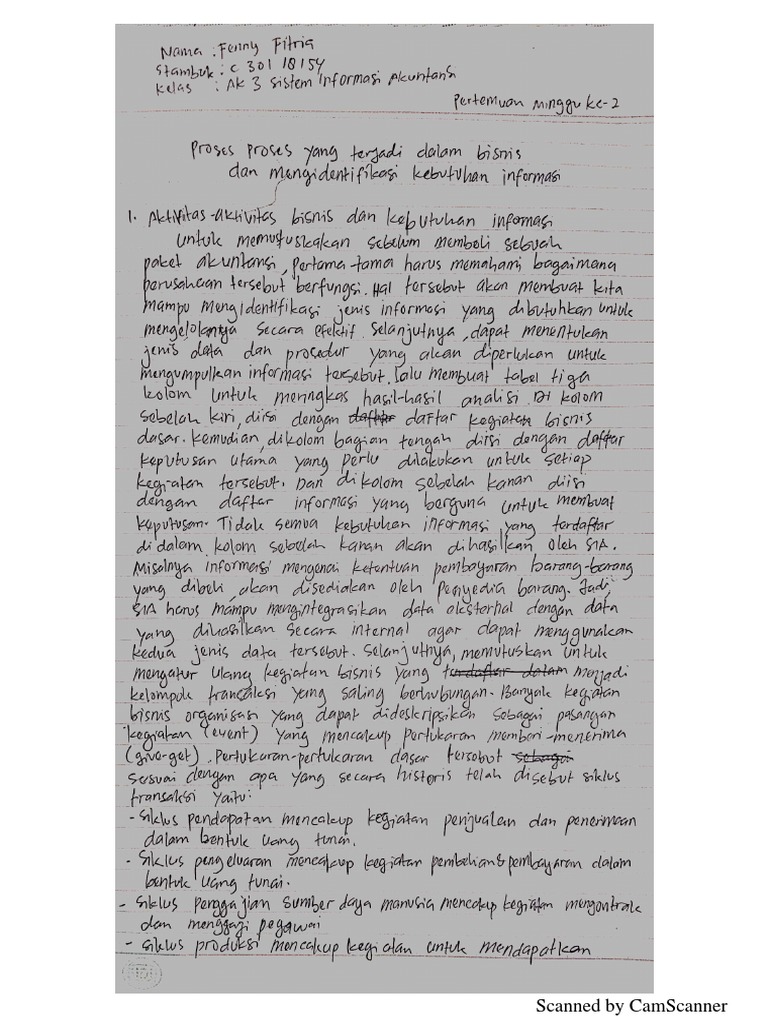 Nama : Fenny Fitria
Stambuk : C 301 18154
Kelas : AK 3 Sistem Informasi Akuntansi
Pertemuan Minggu ke-2
Proses proses yang terjadi dalam bisnis
dan mengidentifikasi kebutuhan informasi
1. Aktivitas-aktivitas bisnis dan kebutuhan informasi
Untuk memustuskakan sebelum membeli sebuah
paket akuntansi, pertama-tama harus memahami bagaimana
perusahaan tersebut berfungsi. Hal tersebut akan membuat kita
mampu mengidentifikasi jenis informasi yang dibutuhkan untuk
mengelolanya secara efektif. Selanjutnya, dapat menentukan
jenis data dan prosedur yang akan diperlukan untuk
mengumpulkan informasi tersebut. Lalu membuat tabel tiga
kolom untuk meringkas hasil-hasil analisi. Di kolom
sebelah kiri, diisi dengan daftar daftar kegiatan bisnis
dasar. Kemudian, dikolom bagian tengah diisi dengan daftar
keputusan utama yang perlu dilakukan untuk setiap
kegiatan tersebut. Dan di kolom sebelah kanan diisi
dengan daftar informasi yang berguna untuk membuat
keputusan. Tidak semua kebutuhan informasi yang terdaftar
didalam kolom sebelah kanan akan dihasilkan oleh SIA.
Misalnya informasi mengenai ketentuan pembayaran barang-barang
yang dibeli, akan disediakan oleh penyedia barang. Jadi,
SIA harus mampu mengintegrasikan data eksternal dengan data
yang dihasilkan secara internal agar dapat menggunakan
kedua jenis data tersebut. Selanjutnya, memutuskan untuk
mengatur ulang kegiatan bisnis yang terdaftar dalam menjadi
kelompok transaksi yang saling berhubungan. Banyak kegiatan
bisnis organisasi yang dapat dideskripsikan sebagai pasangan
kegiatan (event) yang mencakup pertukaran memberi-menerima
(give-get). Pertukaran-pertukaran dasar tersebut sebagai
sesuai dengan apa yang secara historis telah disebut siklus
transaksi yaitu:
- Siklus pendapatan mencakup kegiatan penjualan dan penerimaan
dalam bentuk uang tunai.
- Siklus pengeluaran mencakup kegiatan pembelian & pembayaran dalam
bentuk uang tunai.
- Siklus penggajian sumber daya manusia mencakup kegiatan mengontrak
dan menggaji pegawai
- Siklus produksi mencakup kegiatan untuk mendapatkan
Scanned by CamScanner